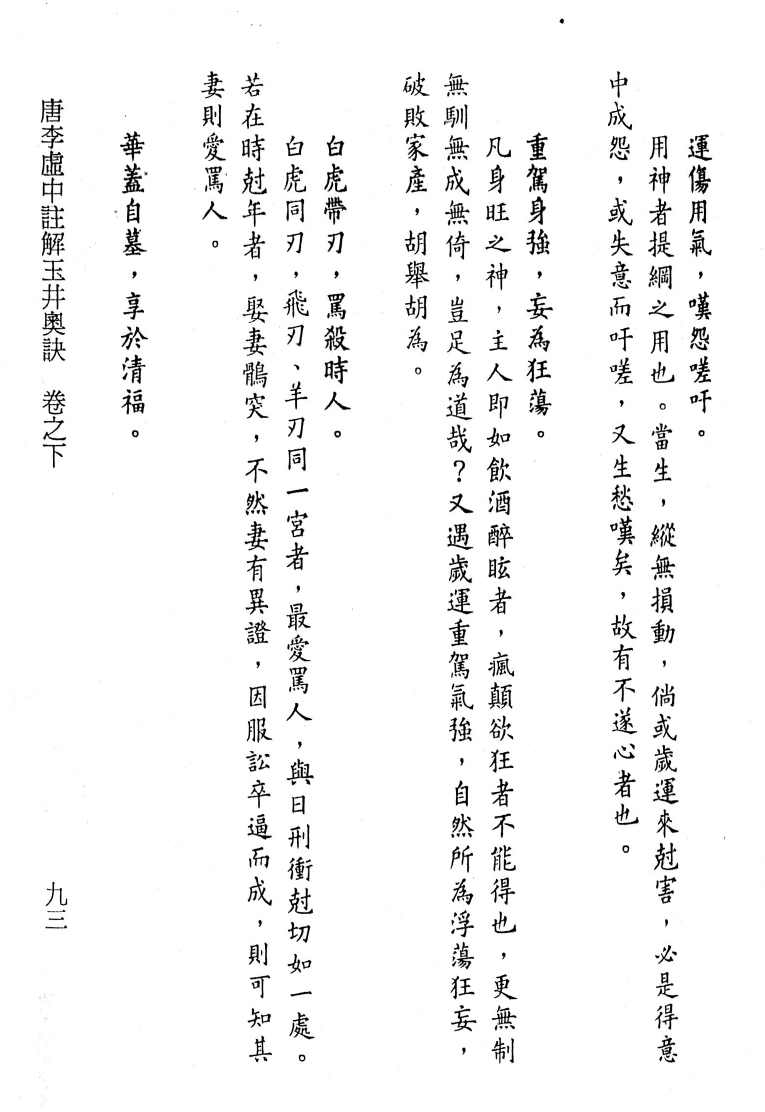 運傷用氣，嘆怨嗟吁。
用神者提綱之用也。當生，縱無損動，倘或歲運來尅害，必是得意
中成怨，或失意而吁嗟，又生愁嘆矣，故有不遂心者也。
重駕身強，妄為狂蕩。
凡身旺之神，主人即如飲酒醉眩者，瘋顛欲狂者不能得也，更無制
無馴無成無倚，豈足為道哉？又遇歲運重駕氣強，自然所為浮蕩狂妄，
破敗家產，胡舉胡為。
白虎帶刃，罵殺時人。
白虎同刃，飛刃、羊刃同一宮者，最愛罵人，與日刑衝尅切如一處。
若在時尅年者，娶妻鶻突，不然妻有異證，因服訟卒逼而成，則可知其
妻則愛罵人。
華蓋自墓，享於清福。
唐李虛中註解玉井奧訣　卷之下
九三